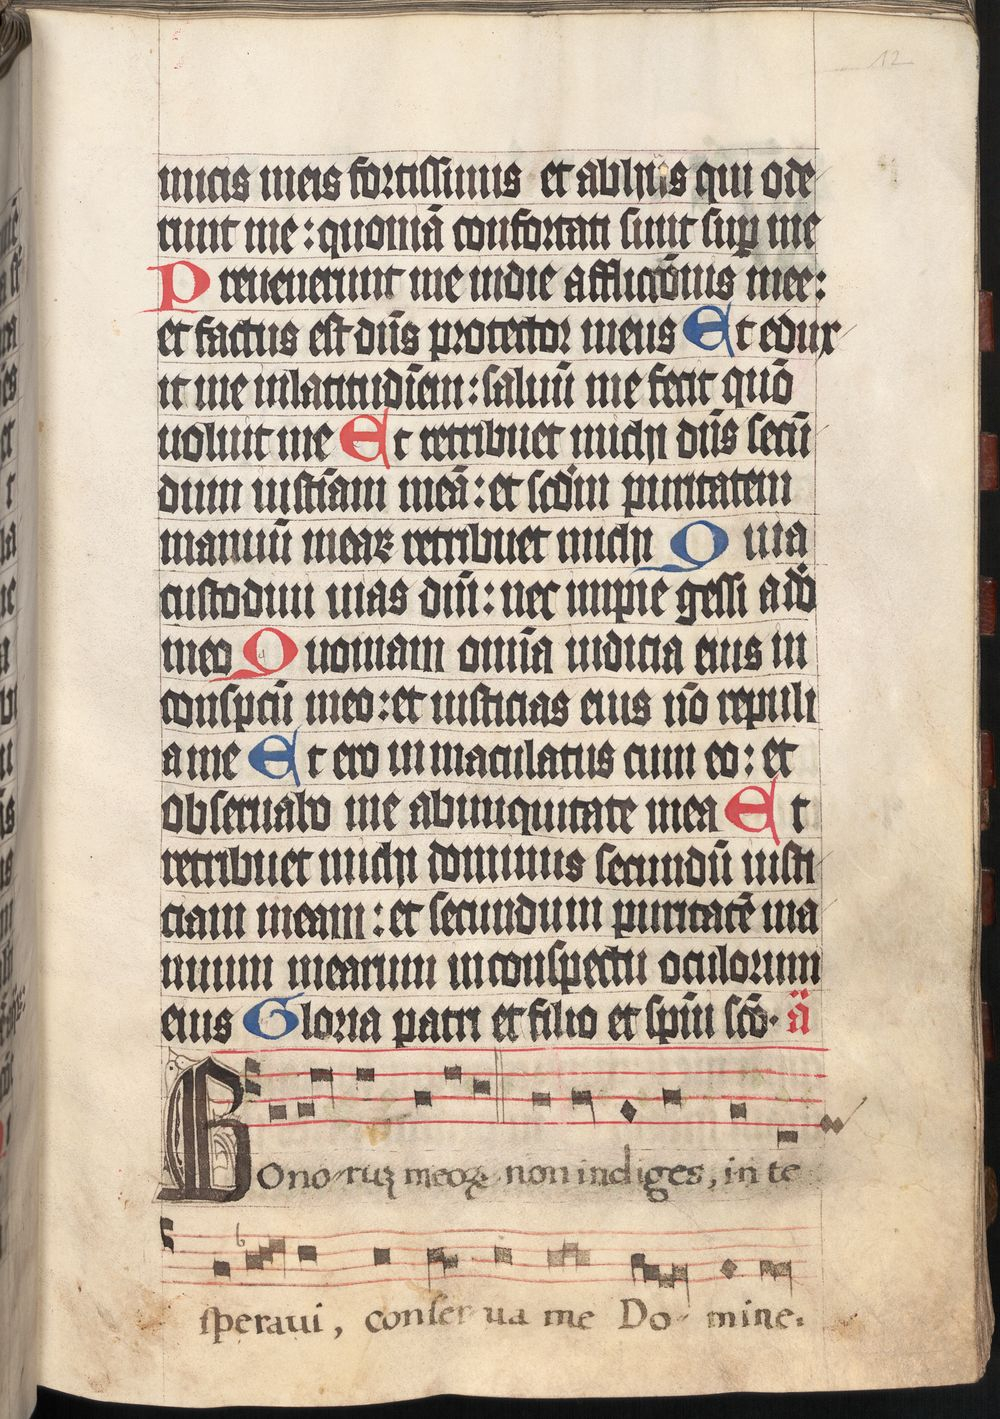 12
micis meis fortissimis et abhijs qui ode
runt me : quoniā confortati sunt sup me
Preuenerunt me indie afflictōnis mee :
et factus est dn̄s protector meus Et edux
it me inlatitudīem : saluū me fecit quō
uoluit me Et retribuet michi dn̄s secū
dum iustīam meā : et scdm puritatem
manuū mearꝝ retribuet michi Quia
custodiui uias dnī : nec impie gessi a dō
meo Quoniam omīa iudicia eius in
conspcū meo : et iusticias eius nō repuli
a me Et ero inmaculatus cum eo : et
obseruabo me abiniquitate mea Et
retribuet michi dominus secundū iusti
ciam meam : et secundum puritatē ma
nuum mearum inconspectu oculorum
eius Gloria patri et filio et spūi scō· ā
Bono-ruꝫ meoꝝ non indiges, in te
speraui, conser-ua me Do-mine.